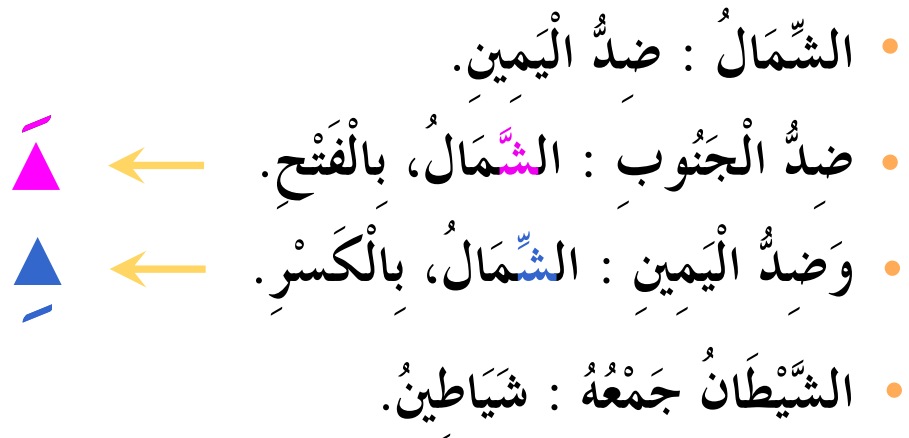 • الشِّمَالُ : ضِدُّ الْيَمِينِ.
• ضِدُّ الْجَنُوبِ : الشَّمَالُ، بِالْفَتْحِ.
• وَضِدُّ الْيَمِينِ : الشِّمَالُ، بِالْكَسْرِ.
• الشَّيْطَانُ جَمْعُهُ : شَيَاطِينُ.